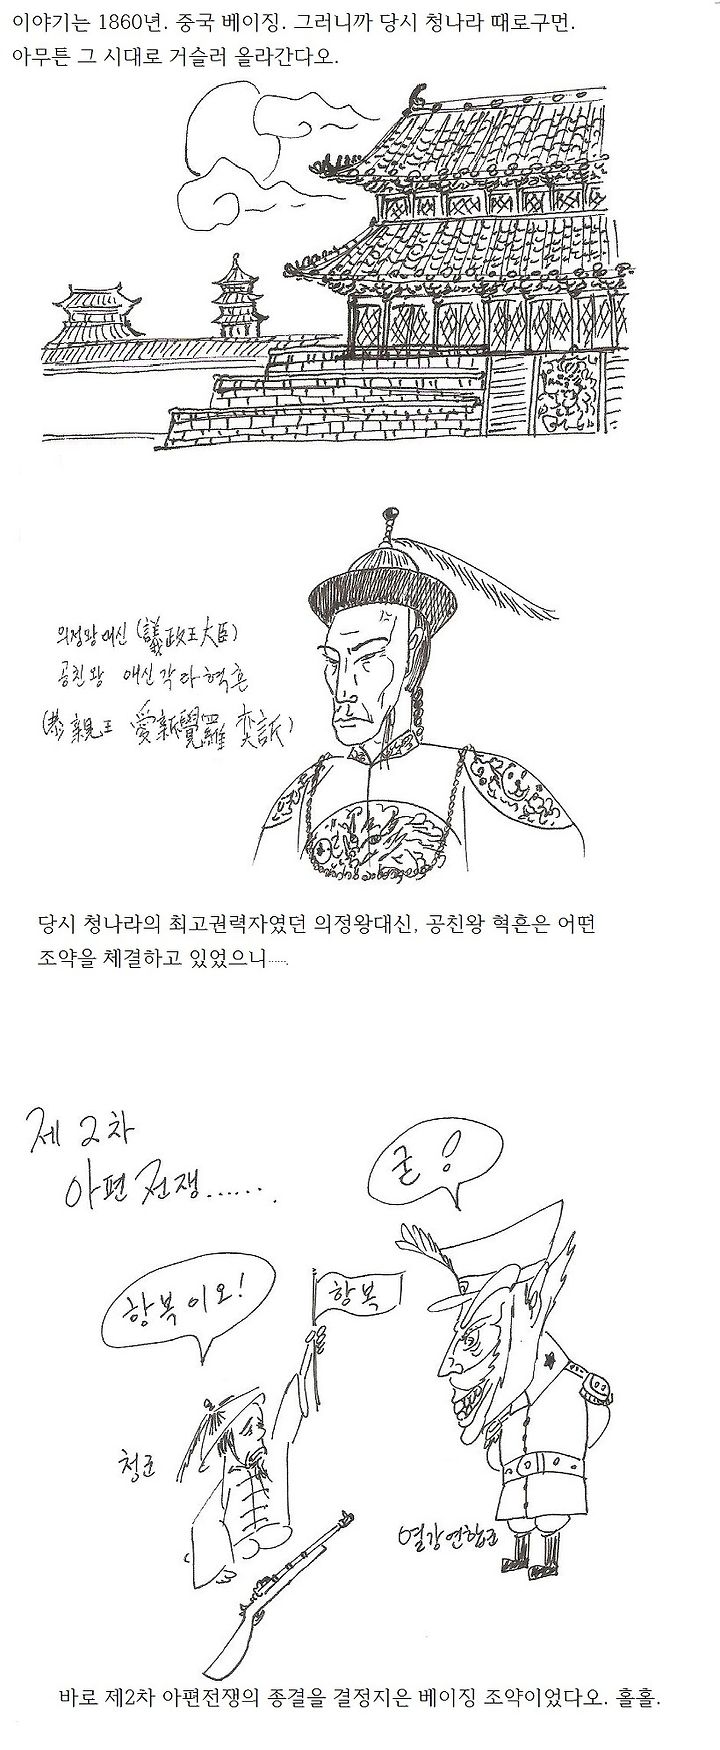 이야기는 1860년. 중국 베이징. 그러니까 당시 청나라 때로구먼.
아무튼 그 시대로 거슬러 올라간다오.
의정왕대신 (議政王大臣)
공친왕 애신각라 혁흔
(恭親王 愛新覺羅 奕訢)
당시 청나라의 최고권력자였던 의정왕대신, 공친왕 혁흔은 어떤
조약을 체결하고 있었으니......
제 2차
아편전쟁......
굳!
항복이오!
항복
청군
열강연합군
바로 제2차 아편전쟁의 종결을 결정지은 베이징 조약이었다오. 홀홀.